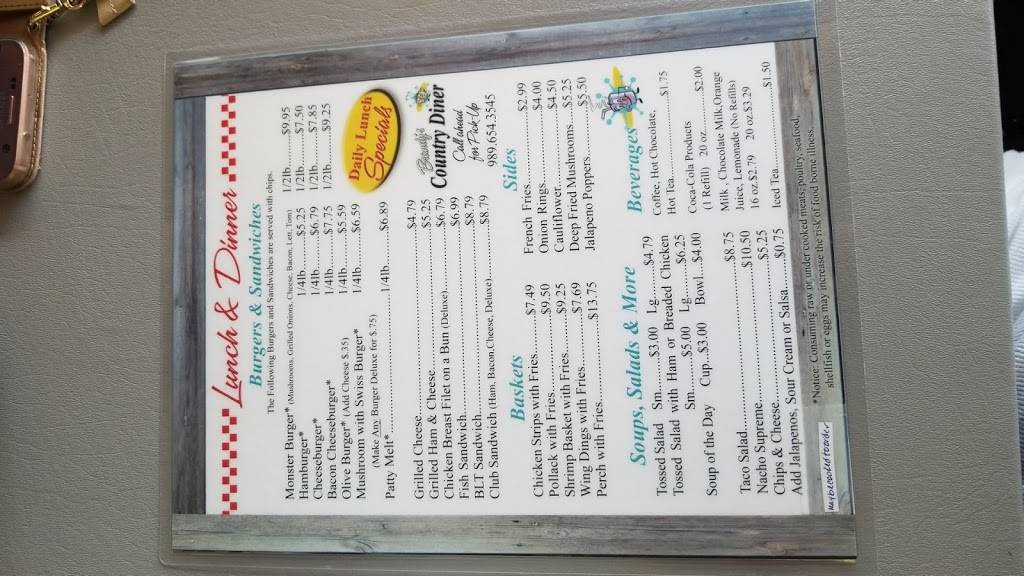 Lunch & Dinner
Burgers & Sandwiches
The Following Burgers and Sandwiches are served with chips.
Monster Burger* (Mushrooms, Grilled Onions, Cheese, Bacon, Lett, Tom) 1/2lb.....$9.95
Hamburger* 1/4lb.......$5.25 1/2lb.....$7.50
Cheeseburger* 1/4lb.......$6.79 1/2lb.....$7.85
Bacon Cheeseburger* 1/4lb.......$7.75 1/2lb.....$9.25
Olive Burger* (Add Cheese $.35) 1/4lb.......$5.59
Mushroom with Swiss Burger* 1/4lb.......$6.59
(Make Any Burger Deluxe for $.75)
Patty Melt*..........1/4lb.......$6.89
Daily Lunch
Specials
Grilled Cheese..........$4.79
Grilled Ham & Cheese..........$5.25
Chicken Breast Filet on a Bun (Deluxe)..........$6.79
Fish Sandwich..........$6.99
BLT Sandwich..........$8.79
Club Sandwich (Ham, Bacon, Cheese, Deluxe)..........$8.79
Country Diner
Call ahead
for Pick-Up
989.654.3545
Baskets
Chicken Strips with Fries..........$7.49
Pollack with Fries..........$9.50
Shrimp Basket with Fries..........$9.25
Wing Dings with Fries..........$7.69
Perch with Fries..........$13.75
Sides
French Fries..........$2.99
Onion Rings..........$4.00
Cauliflower..........$4.50
Deep Fried Mushrooms....$5.25
Jalapeno Poppers..........$5.50
Soups, Salads & More
Tossed Salad Sm.......$3.00 Lg.......$4.79
Tossed Salad with Ham or Breaded Chicken
Sm.......$5.00 Lg.......$6.25
Soup of the Day Cup..$3.00 Bowl...$4.00
Taco Salad..........$8.75
Nacho Supreme..........$10.50
Chips & Cheese..........$5.25
Add Jalapenos, Sour Cream or Salsa......$0.75
Beverages
Coffee, Hot Chocolate,
Hot Tea..........$1.75
Coca-Cola Products
(1 Refill) 20 oz..........$2.00
Milk, Chocolate Milk, Orange
Juice, Lemonade (No Refills)
16 oz.$2.79 20 oz.$3.29
Iced Tea..........$1.50
*Notice: Consuming raw or under cooked meats, poultry, seafood,
shellfish or eggs may increase the risk of food borne illness.
*May be cooked to order